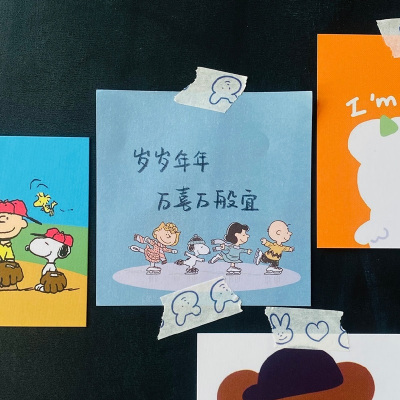 岁岁年年
万喜万般宜
I'm